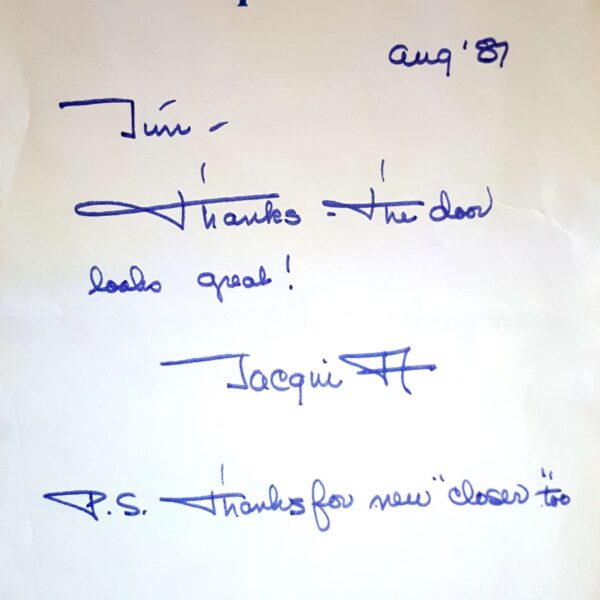 Aug '87
Jim -
Thanks - The door
looks great!
Jacqui A
P.S. Thanks for new "closer" too